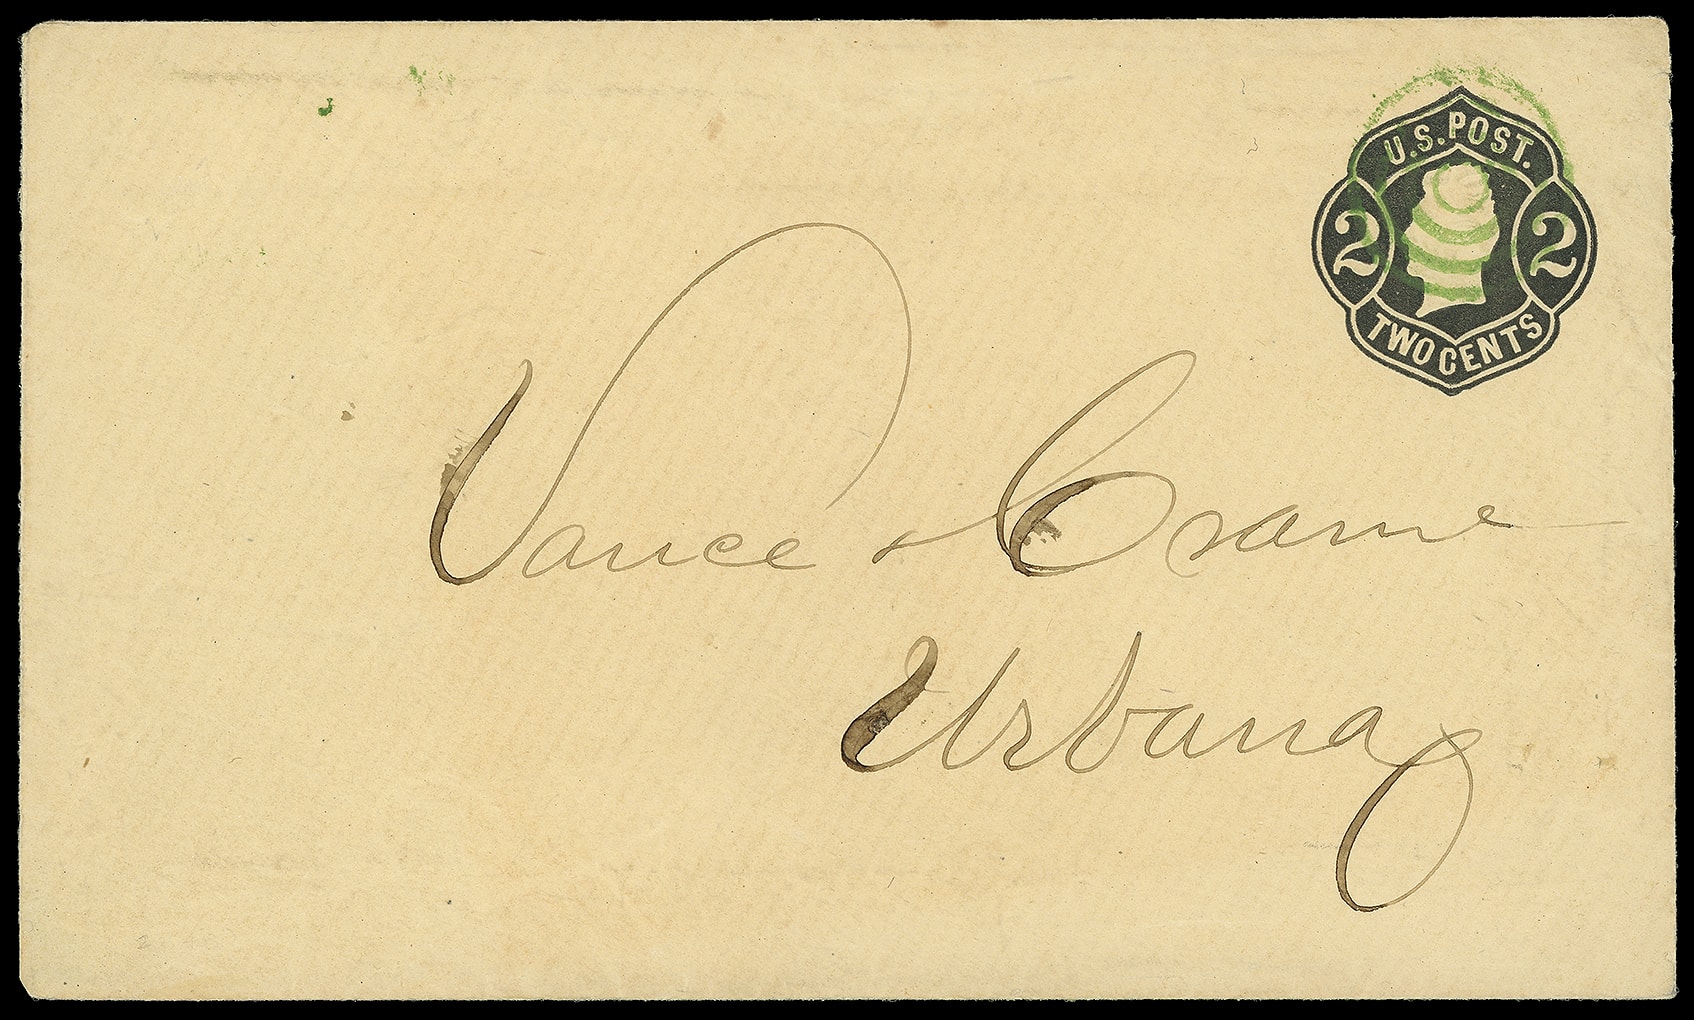 U.S. POST.
2 2
TWO CENTS
Vance & Crane
Urbana